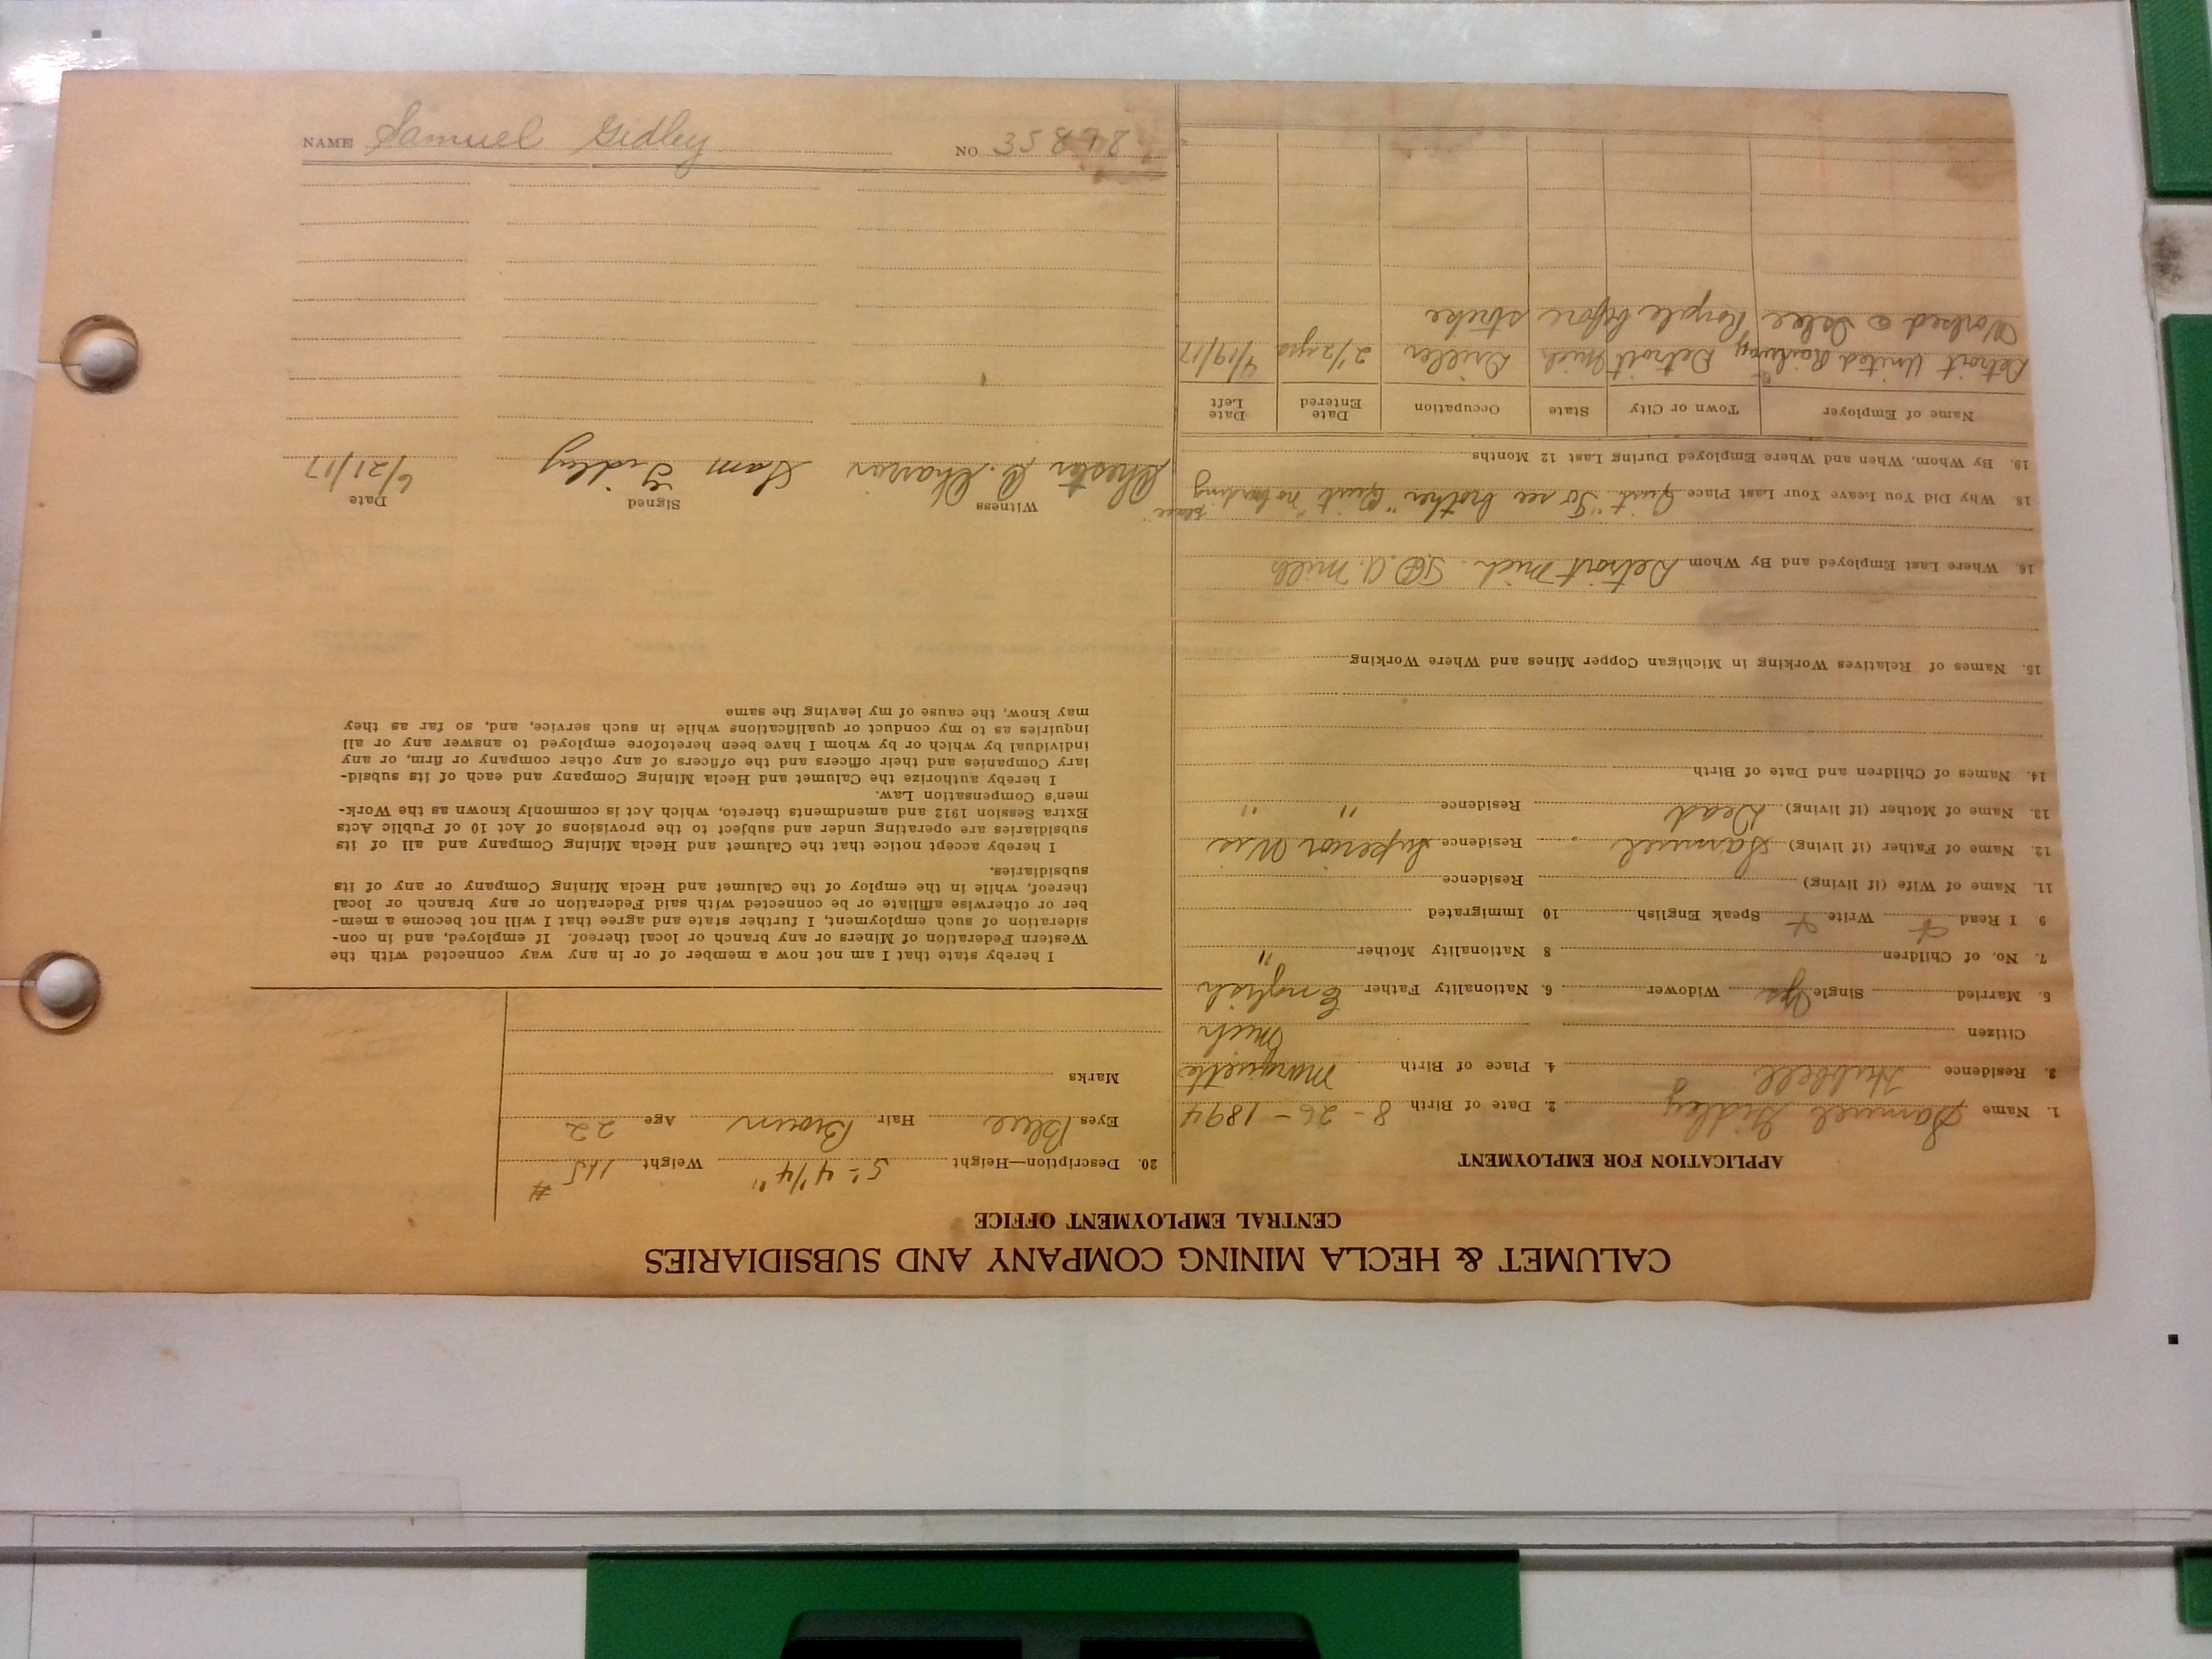 NAME Samuel Gidley NO 35898
CALUMET & HECLA MINING COMPANY AND SUBSIDIARIES
CENTRAL EMPLOYMENT OFFICE
APPLICATION FOR EMPLOYMENT
1. Name Samuel Gidley 2. Date of Birth 8-26-1894
3. Residence Hubbell 4. Place of Birth Marquette
Citizen Mich
5. Married Single Yes Widower 6. Nationality Father English
7. No. of Children 8 Nationality Mother "
9 I Read Write Speak English 10 Immigrated
11. Name of Wife (if living) Residence
12. Name of Father (if living) Samuel Residence Superior Wis
13. Name of Mother (if living) Dead Residence " "
14. Names of Children and Date of Birth
15. Names of Relatives Working in Michigan Copper Mines and Where Working
16. Where Last Employed and By Whom Detroit Mich. Mills
18. Why Did You Leave Your Last Place Quit "To see brother" Quit "no boarding place"
19. By Whom, When and Where Employed During Last 12 Months
Name of Employer Town or City State Occupation Date Entered Date Left
Detroit United Railway Detroit Mich Driller 2 1/2 yrs 4/19/17
Worked @ Isle Royale before strike
20. Description—Height 5'- 4 1/4" Weight 145 #
Eyes Blue Hair Brown Age 22
Marks
I hereby state that I am not now a member of or in any way connected with the
Western Federation of Miners or any branch or local thereof. If employed, and in con-
sideration of such employment, I further state and agree that I will not become a mem-
ber or otherwise affiliate or be connected with said Federation or any branch or local
thereof, while in the employ of the Calumet and Hecla Mining Company or any of its
subsidiaries.
I hereby accept notice that the Calumet and Hecla Mining Company and all of its
subsidiaries are operating under and subject to the provisions of Act 10 of Public Acts
Extra Session 1912 and amendments thereto, which Act is commonly known as the Work-
men's Compensation Law.
I hereby authorize the Calumet and Hecla Mining Company and each of its subsid-
iary Companies and their officers and the officers of any other company or firm, or any
individual by which or by whom I have been heretofore employed to answer any or all
inquiries as to my conduct or qualifications while in such service, and, so far as they
may know, the cause of my leaving the same
Witness Signed Date
Chester Sam Gidley 6/21/17